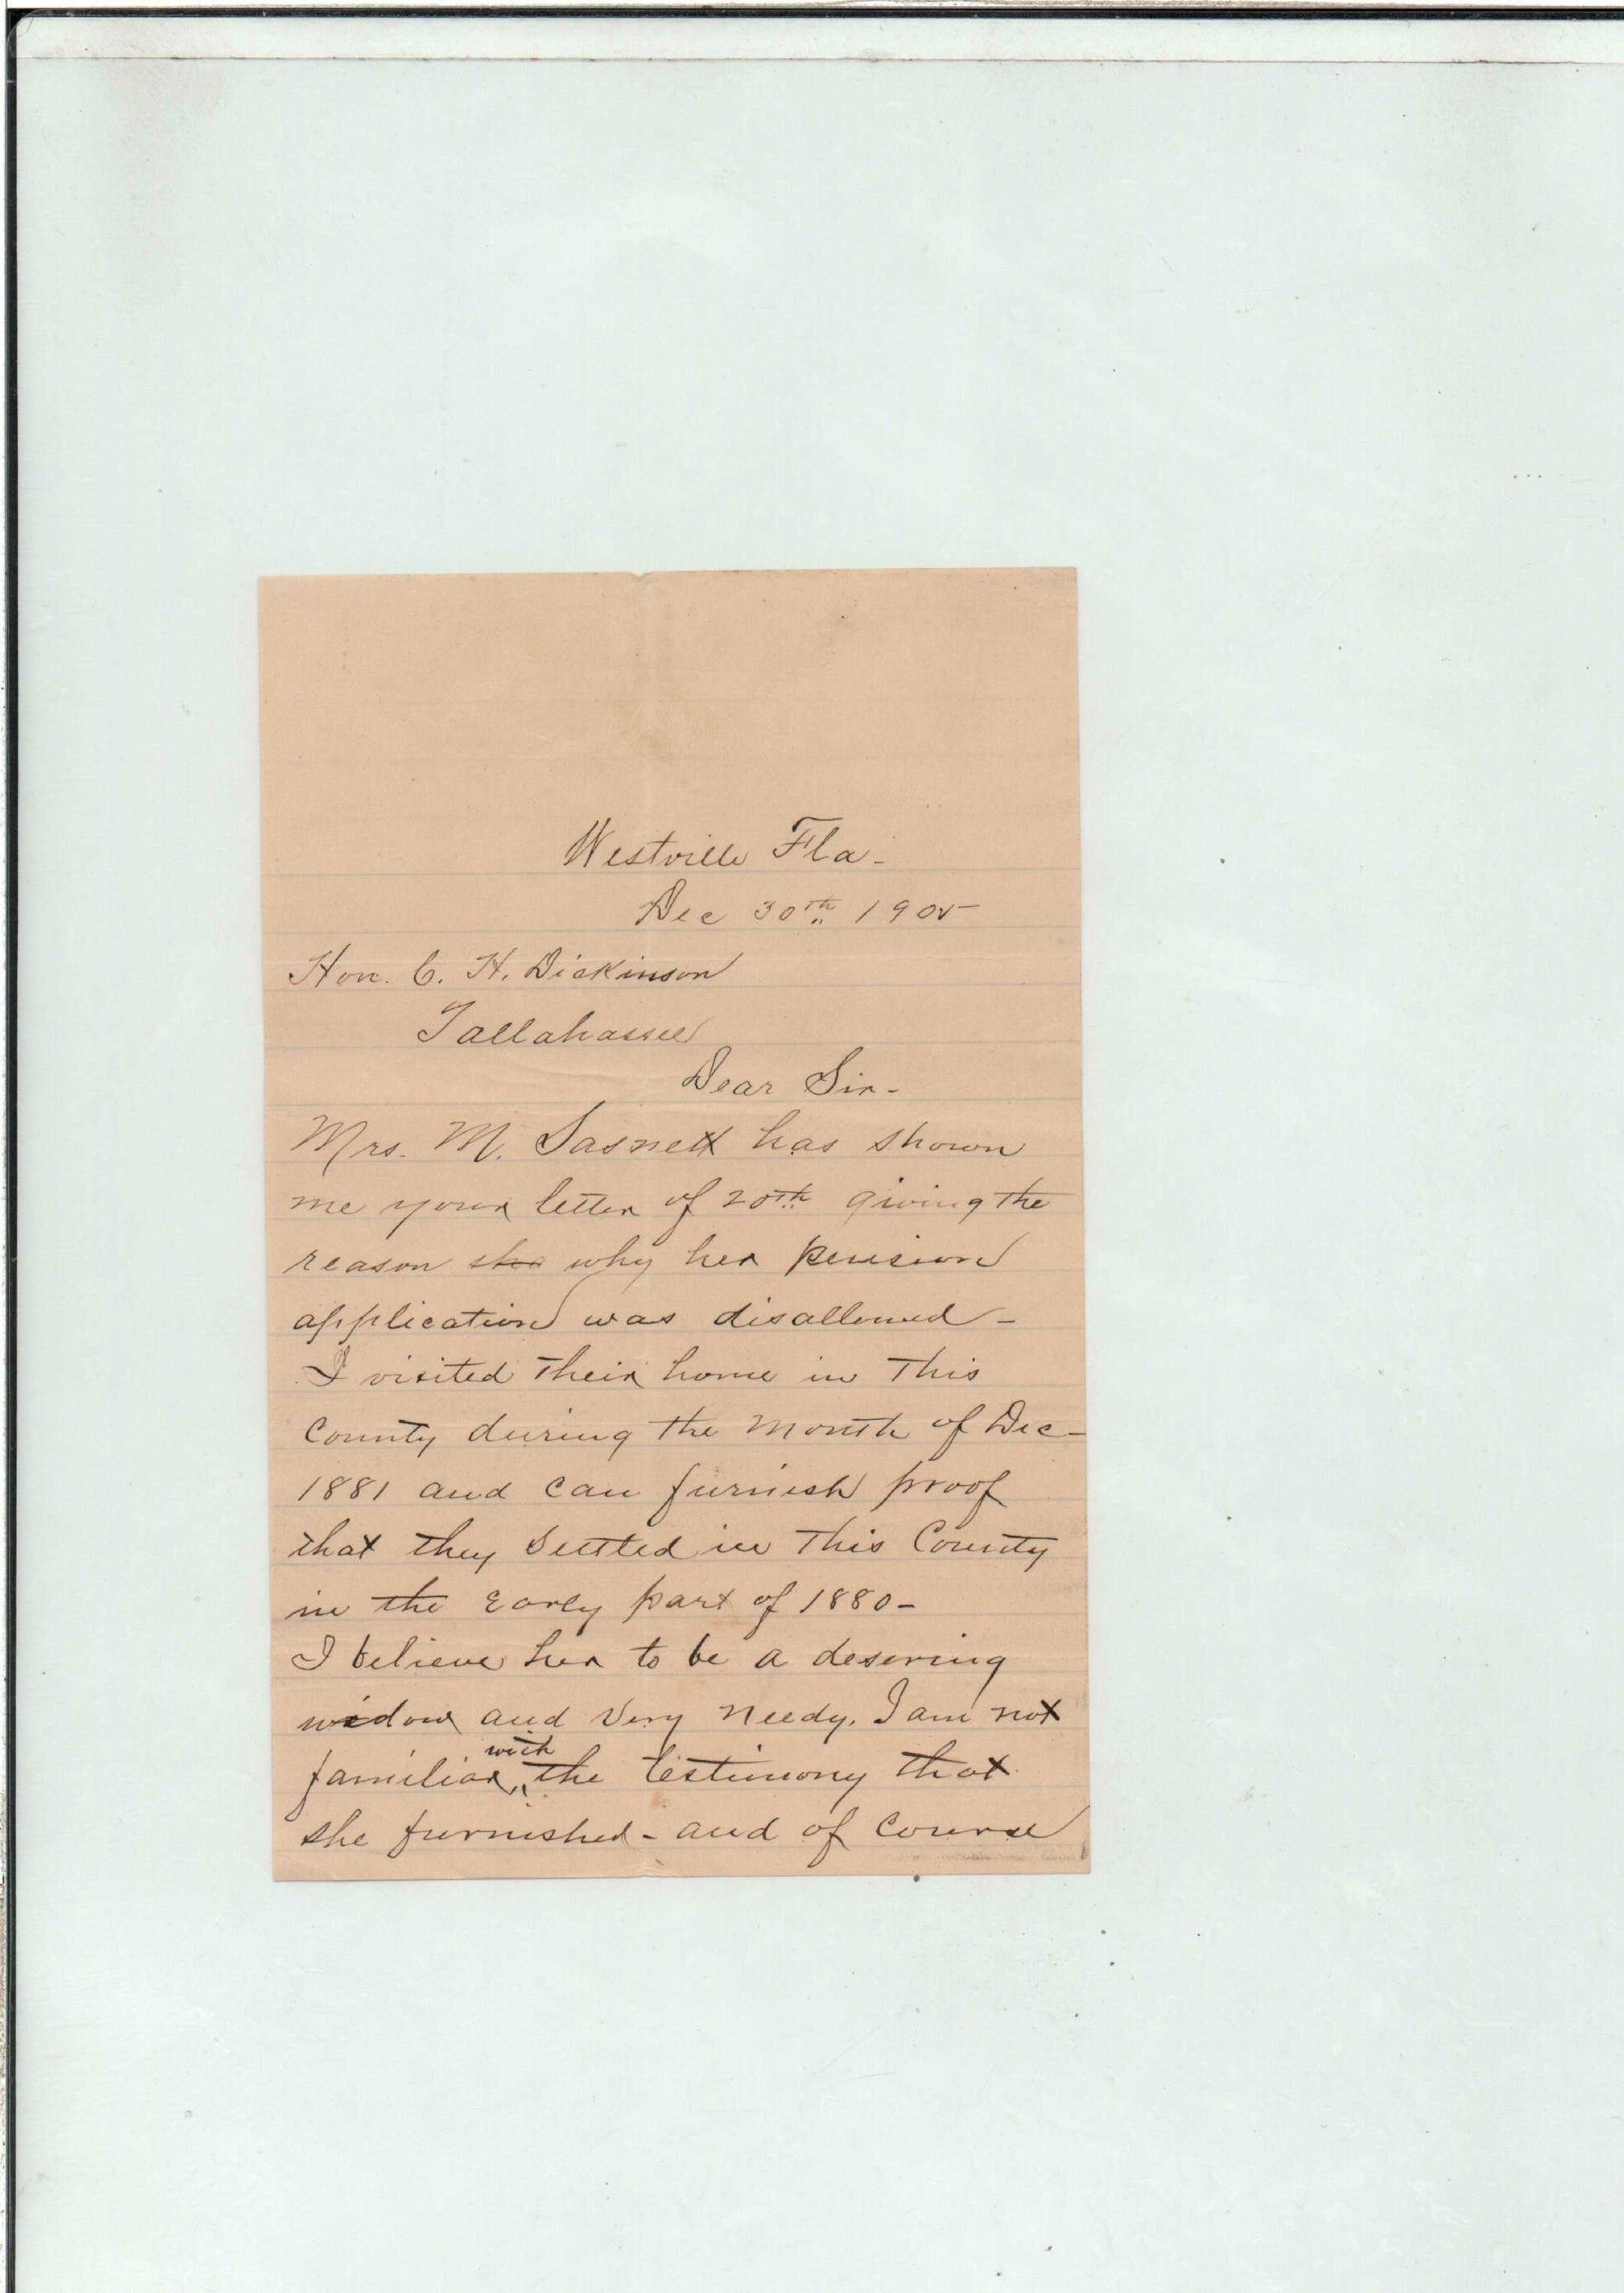 Westville Fla-
Dec 30th 1905
Hon. C. H. Dickinson
Tallahassee
Dear Sir-
Mrs. M. Sasnett has shown
me your letter of 20th giving the
reason she why her pension
application was disallowed-
I visited their home in this
County during the month of Dec-
1881 and can furnish proof
that they settled in this County
in the early part of 1880-
I believe her to be a deserving
widow and very needy. I am not
familiar with the testimony that
she furnished - and of course